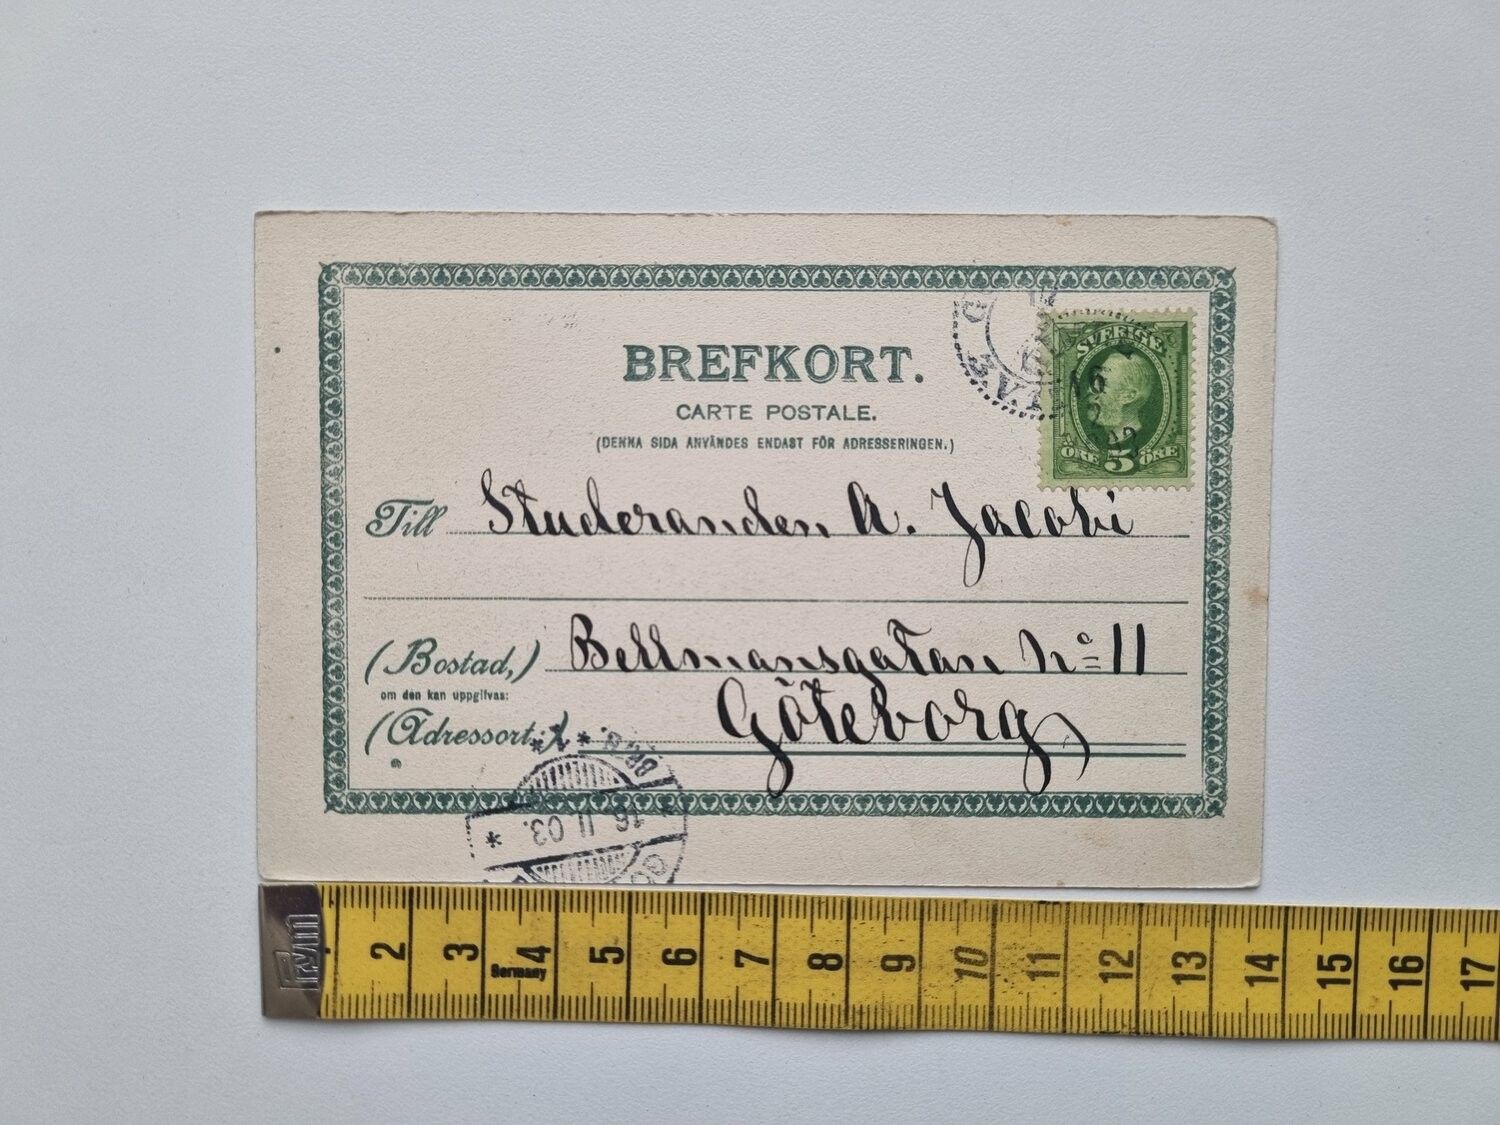 BREFKORT.
CARTE POSTALE.
(DENNA SIDA ANVÄNDES ENDAST FÖR ADRESSERINGEN.)
SVERIGE
ÖRE 5 ÖRE
Till Studeranden A. Jacobi
(Bostad,) Bellmansgatan No 11
om den kan uppgifvas:
Göteborg
(Adressort:)
16. 11 03.
Prym
2 3 4 5 6 7 8 9 10 11 12 13 14 15 16 17
Germany